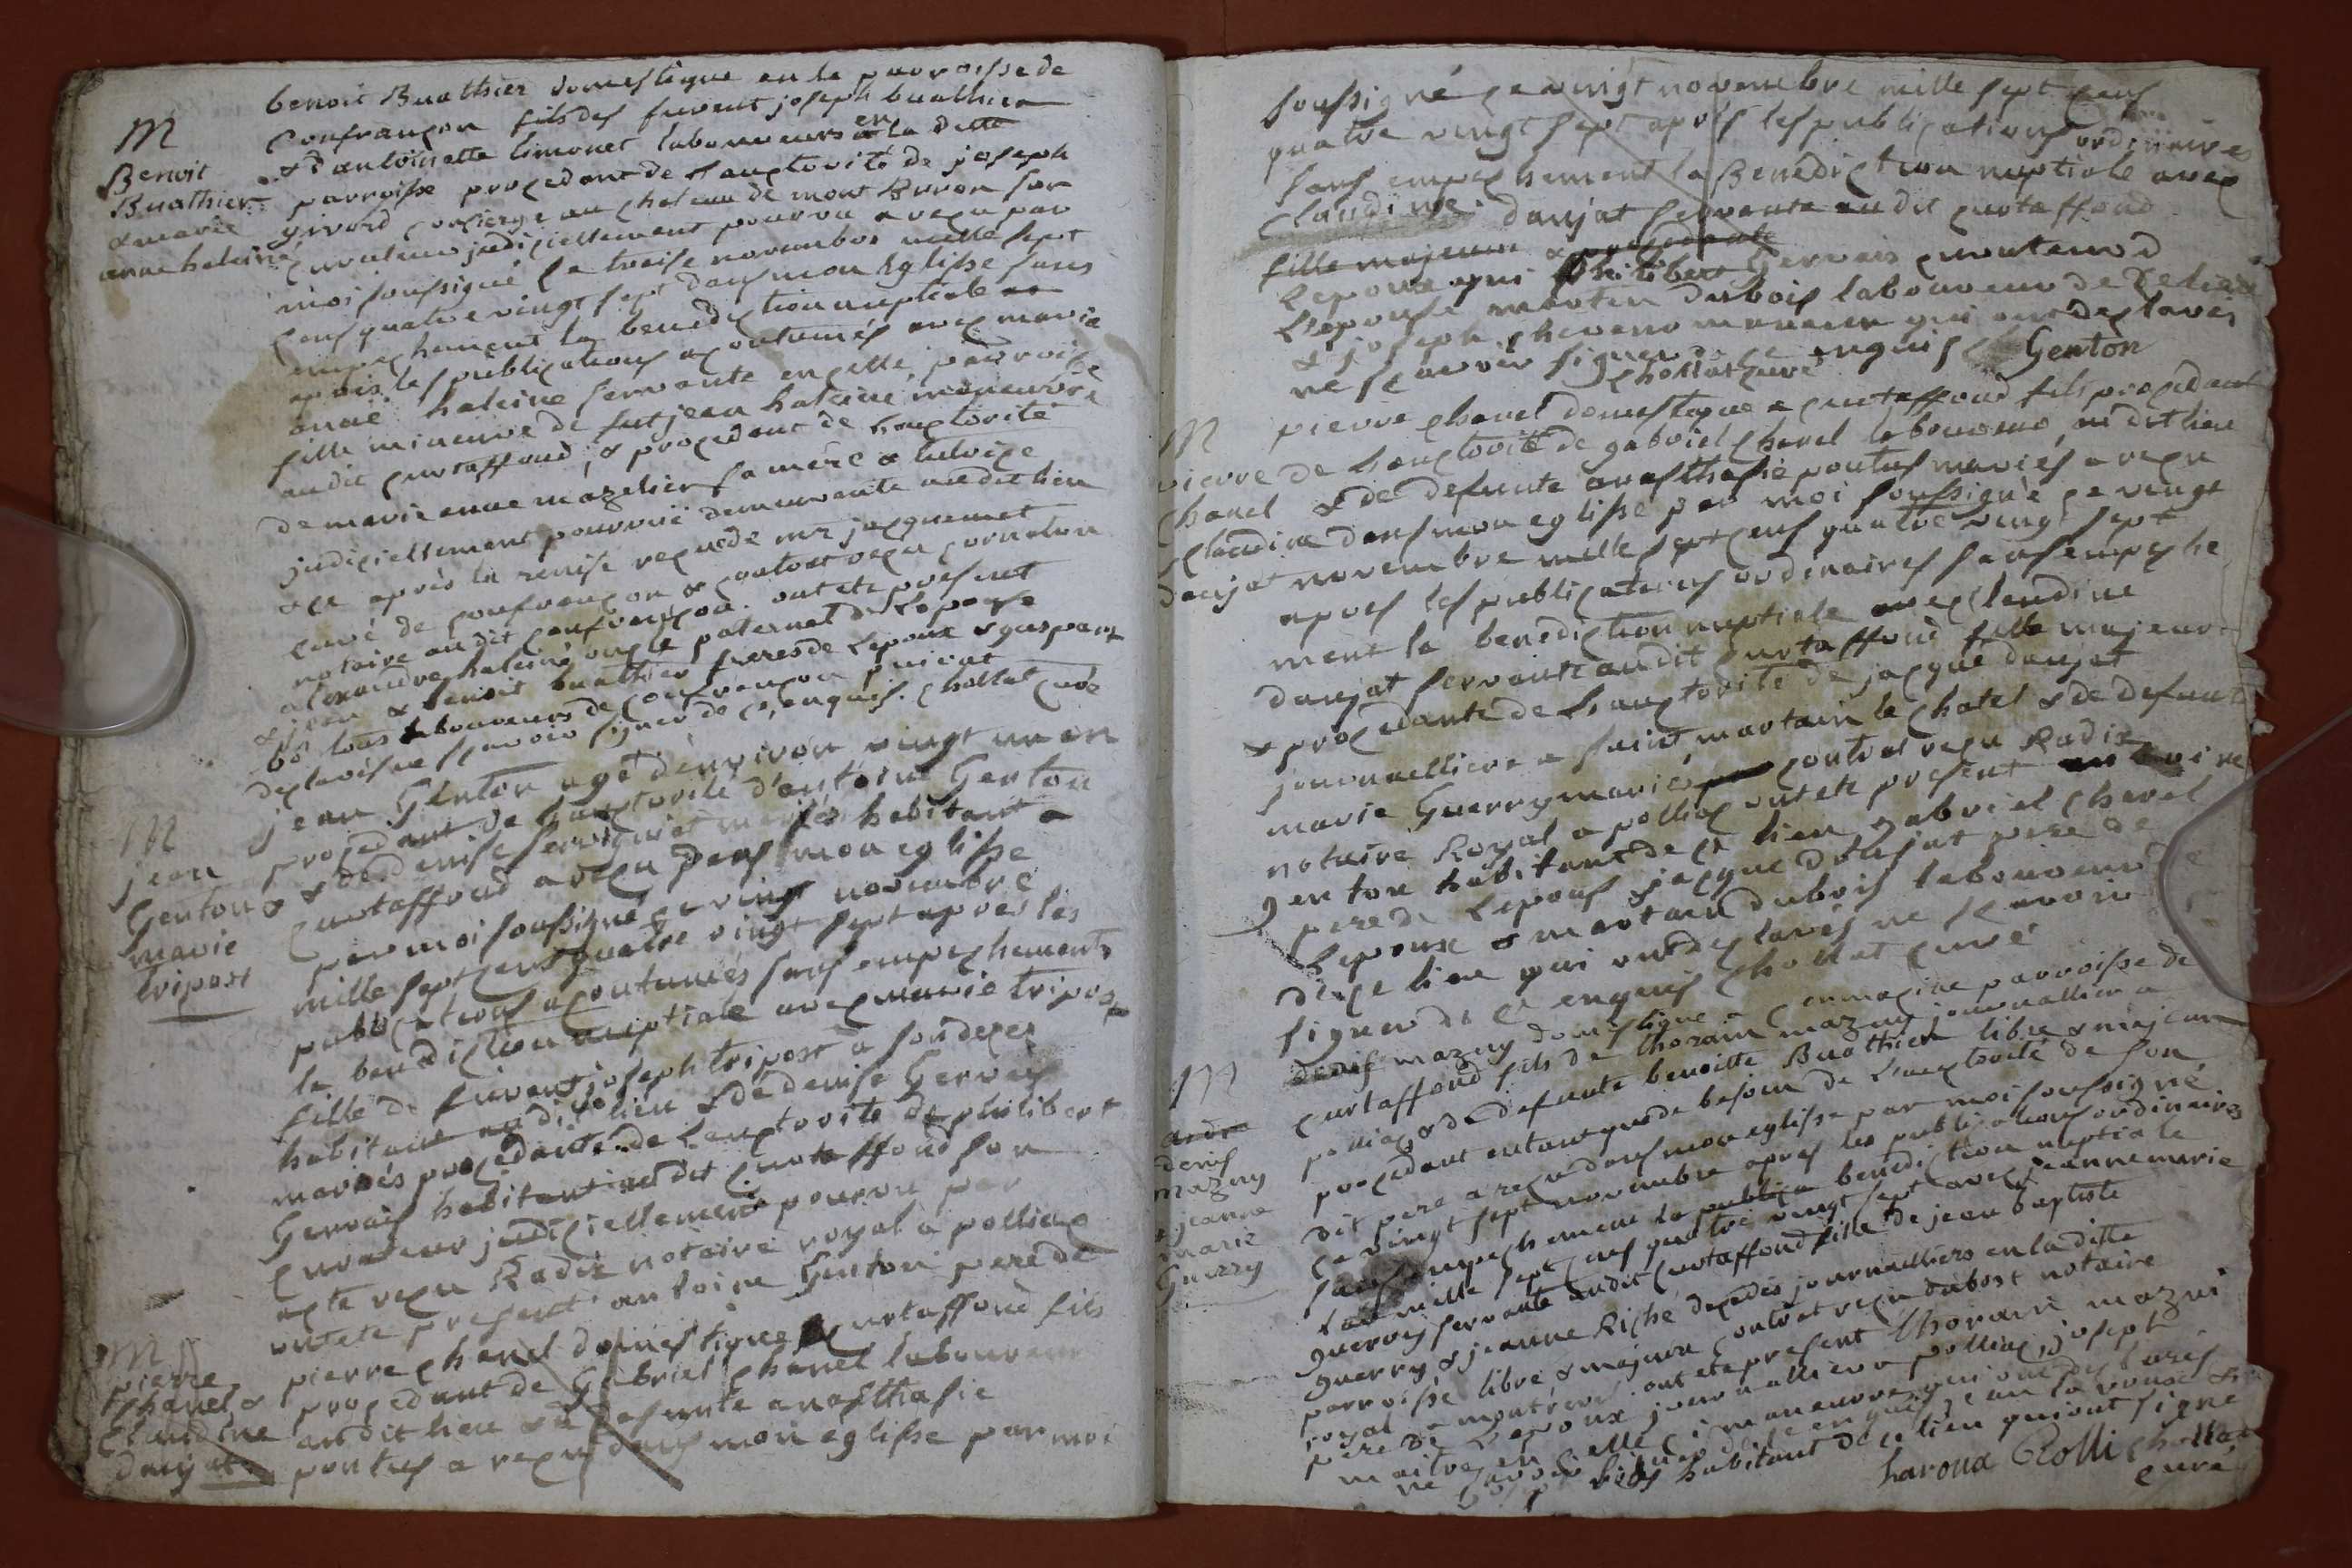 M
Benoit
Buathier
& marie
anne haleiné
benoit Buathier domestique en la parroisse de
Confrançon fils des furent joseph buathier
& d'antoinette limonet laboureurs en la ditte
parroisse procedant de l'auctorité de joseph
givord concierge au chateau de mont Buron son
curateur judiciellement pourvu a reçu par
moi soussigné le treise novembre mille sept
cens quatre vingt sept dans mon Eglisse sans
empechement la benediction nuptiale
apres les publications acoutumés avec marie
anne haleine servante en cette parroisse
fille mineure de fut jean haleiné maneuvre
audit curtaffoud, & procedant de l'auctorité
de marie anne mazelier sa mere & tutrice
judiciellement pourvue demeurante audit lieu
& ce après la remise reçu de mr jacquemet
curé de confrançon & contrat reçu cornaton
notaire audit confrançon. ont ete present
alexandre haleiné oncle paternel de l'epouse
& jean & benoit buathier freres de l'epoux & gaspard
bo tous laboureurs de confrançon qui ont
declarés ne sçavoir signer de ce enquis. chollat curé
M
jean
Genton &
marie
tripost
jean Genton agé d'environ vingt un an
procedant de l'auctorité d'antoine Genton
& de denise servignat mariés habitant a
Curtaffoud a reçu dans mon eglisse
par moi soussigné ce vingt novembre
mille sept cens quatre vingt sept apres les
publications acoutumés sans empechements
la benediction nuptiale avec marie tripost
fille de furent joseph tripost
habitant audit lieu & de denise Gervais
mariés procedante de l'auctorité de philibert
Gervais habitant audit curtaffoud son
curateur judiciellement pourvu par
acte reçu Radix notaire royal a polliac
ont ete present antoine Genton pere de
M
pierre
chanel &
Claudine
daujat
pierre chanel domestique a curtaffoud fils
procedant de Gabriel chanel laboureur
audit lieu & de defunte anasthasie
pontus a reçu dans mon eglisse par moi
soussigné ce vingt novembre mille sept cens
quatre vingt sept aprés les publications ordinaires
sans empechement la Benediction nuptiale avec
Claudine daujat servante audit curtaffoud
fille majeure & procedante
l'epoux qui philibert Gervais curateur d
l'epouse martin dubois laboureur de ce lieu
& joseph chevand maneuvre qui ont declarés
ne sçavoir signer de ce enquis Genton
chollat curé
M
pierre
chanel
& claudine
daujat
pierre chanel domestique a curtaffoud fils procedant
de l'auctorité de gabriel chanel laboureur audit lieu
& de defunte anasthasie pontus mariés a reçu
dans mon eglisse par moi soussigné ce vingt
novembre mille sept cens quatre vingt sept
apres les publications ordinaires sans empeche
ment la benediction nuptiale avec claudine
daujat servante audit curtaffoud fille majeure
& procedante de l'auctorité de jacque daujat
journaelliere a saint martain le chatel & de defunte
marie Guerry mariés contrat reçu Radix
notaire Royal a polliac ont ete present antoine
genton habitant de ce lieu gabriel chanel
pere de l'epoux jacque daujat pere de
l'epouse & martain dubois laboureur
de ce lieu qui ont declarés ne sçavoir
signer de ce enquis chollat curé
M
andre
denis
mazuy
& jeanne
marie
Guerry
denis mazuy domestique a Cormazine parroisse de
curtaffoud fils de thorain mazuy journallier a
polliac & de defunte benoitte Buathier libre & majeur
procedant entant que de besoin de l'auctorité de son
dit pere a reçu dans mon eglisse par moi soussigné
ce vingt sept novembre apres les publications ordinaires
sans empechement la publica benediction nuptiale
l'an mille sept cens quatre vingt sept avec jeanne marie
guerry servante audit curtaffoud fille de jean baptiste
guerry & jeanne Riche decedés journalliers en la ditte
parroisse libre & majeure contrat reçu dubost notaire
royal a montrevel. ont ete present thorain mazui
pere de l'epoux journallier a polliac, joseph
maitre maneuvre qui ont declarés
ne sçavoir signer de ce enquis, jean laroux &
habitant de ce lieu qui ont signé
laroux Rolli chollat
curé